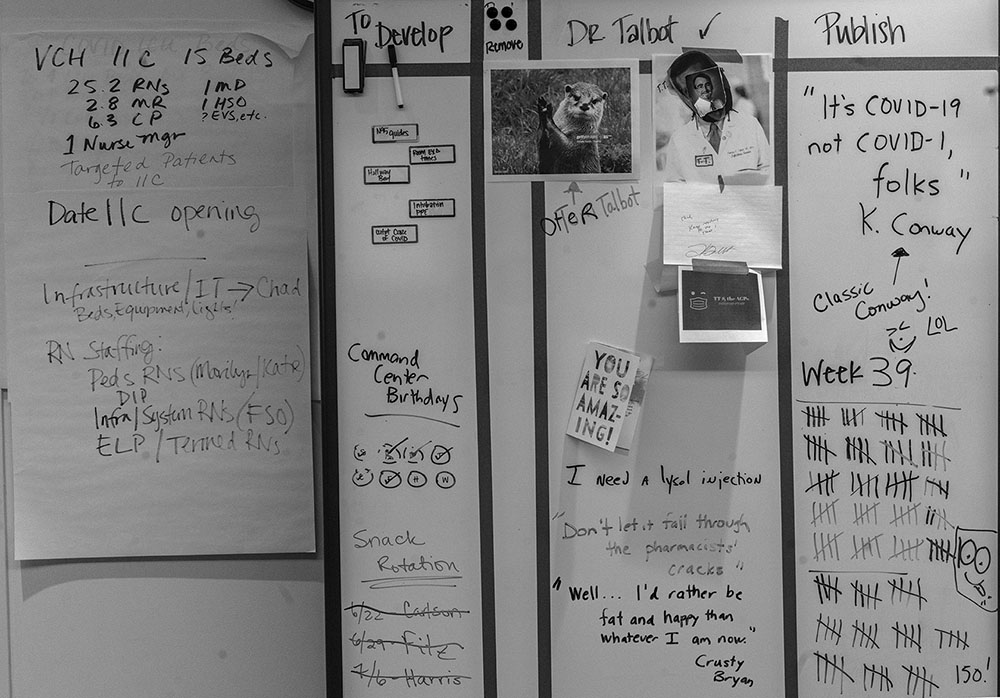 VCH 11C 15 Beds
25.2 RNs 1 MD
2.8 MR 1 HSO
6.3 CP ? EVS, etc.
1 Nurse Mgr
Targeted Patients
to 11C
Date 11C opening
Infrastructure/IT → Chad
Beds, Equipment, Lights!
RN Staffing:
Peds RNs (Marilyn/Kate)
DIP
Infra/System RNs (FSO)
ELP / Termed RNs
To
Develop
N95 guides
Hallway
Bed
Intubation
PPE
of COVID
Command
Center
Birthdays
H W
Snack
Rotation
6/22 - Carlson
6/29 - Fitz
7/6 - Harris
Remove
Dr Talbot ✓
OTTER Talbot
T.T.
YOU
ARE SO
AMAZ-
ING!
I need a lysol injection
"Don't let it fall through
the pharmacists'
cracks"
"Well... I'd rather be
fat and happy than
whatever I am now."
Crusty
Bryan
Publish
"It's COVID-19
not COVID-1,
folks"
K. Conway
Classic
Conway!
LOL
Week 39
150!